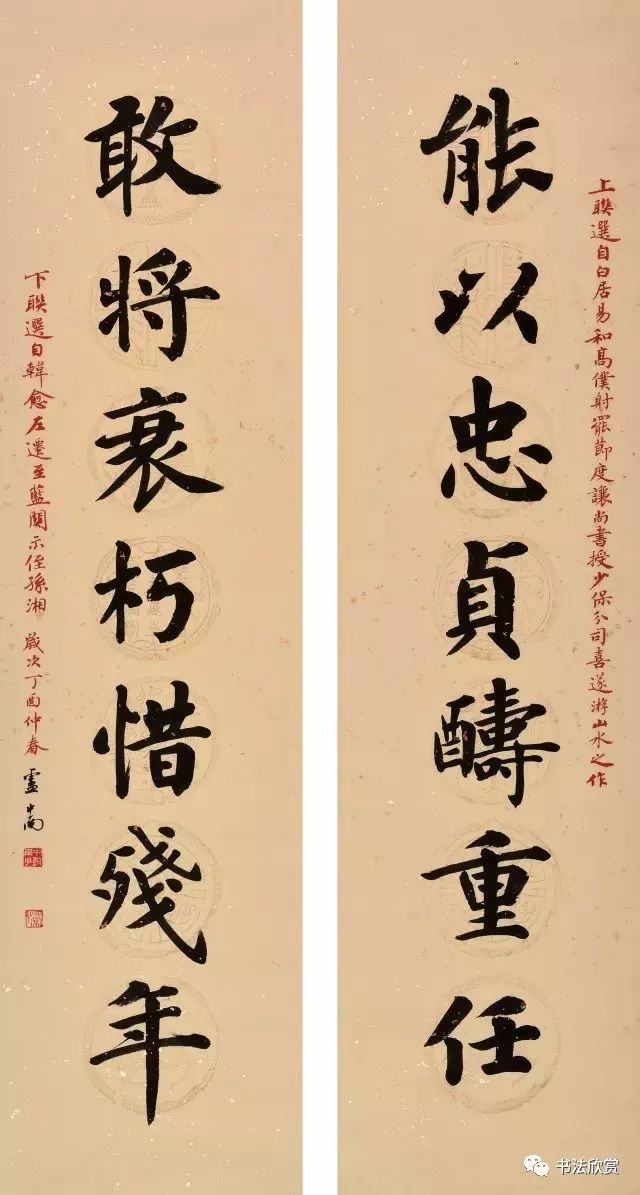 上联選自白居易和髙僕射罷節度讓尚書授少保分司喜遂游山水之作
能以忠貞酬重任
敢將衰朽惜殘年
下联選自韓愈左遷至藍関示侄孫湘 歳次丁酉仲春 盧中南
书法欣赏